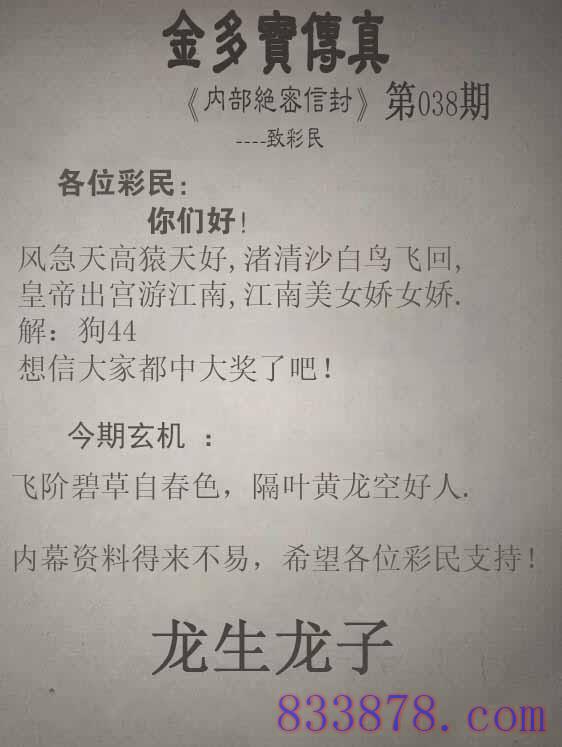 金多寶傳真
《内部絶密信封》第038期
----致彩民
各位彩民:
你们好!
风急天高猿天好,渚清沙白鸟飞回,
皇帝出宫游江南,江南美女娇女娇.
解：狗44
想信大家都中大奖了吧！
今期玄机 ：
飞阶碧草自春色，隔叶黄龙空好人.
内幕资料得来不易，希望各位彩民支持！
龙生龙子
833878.com